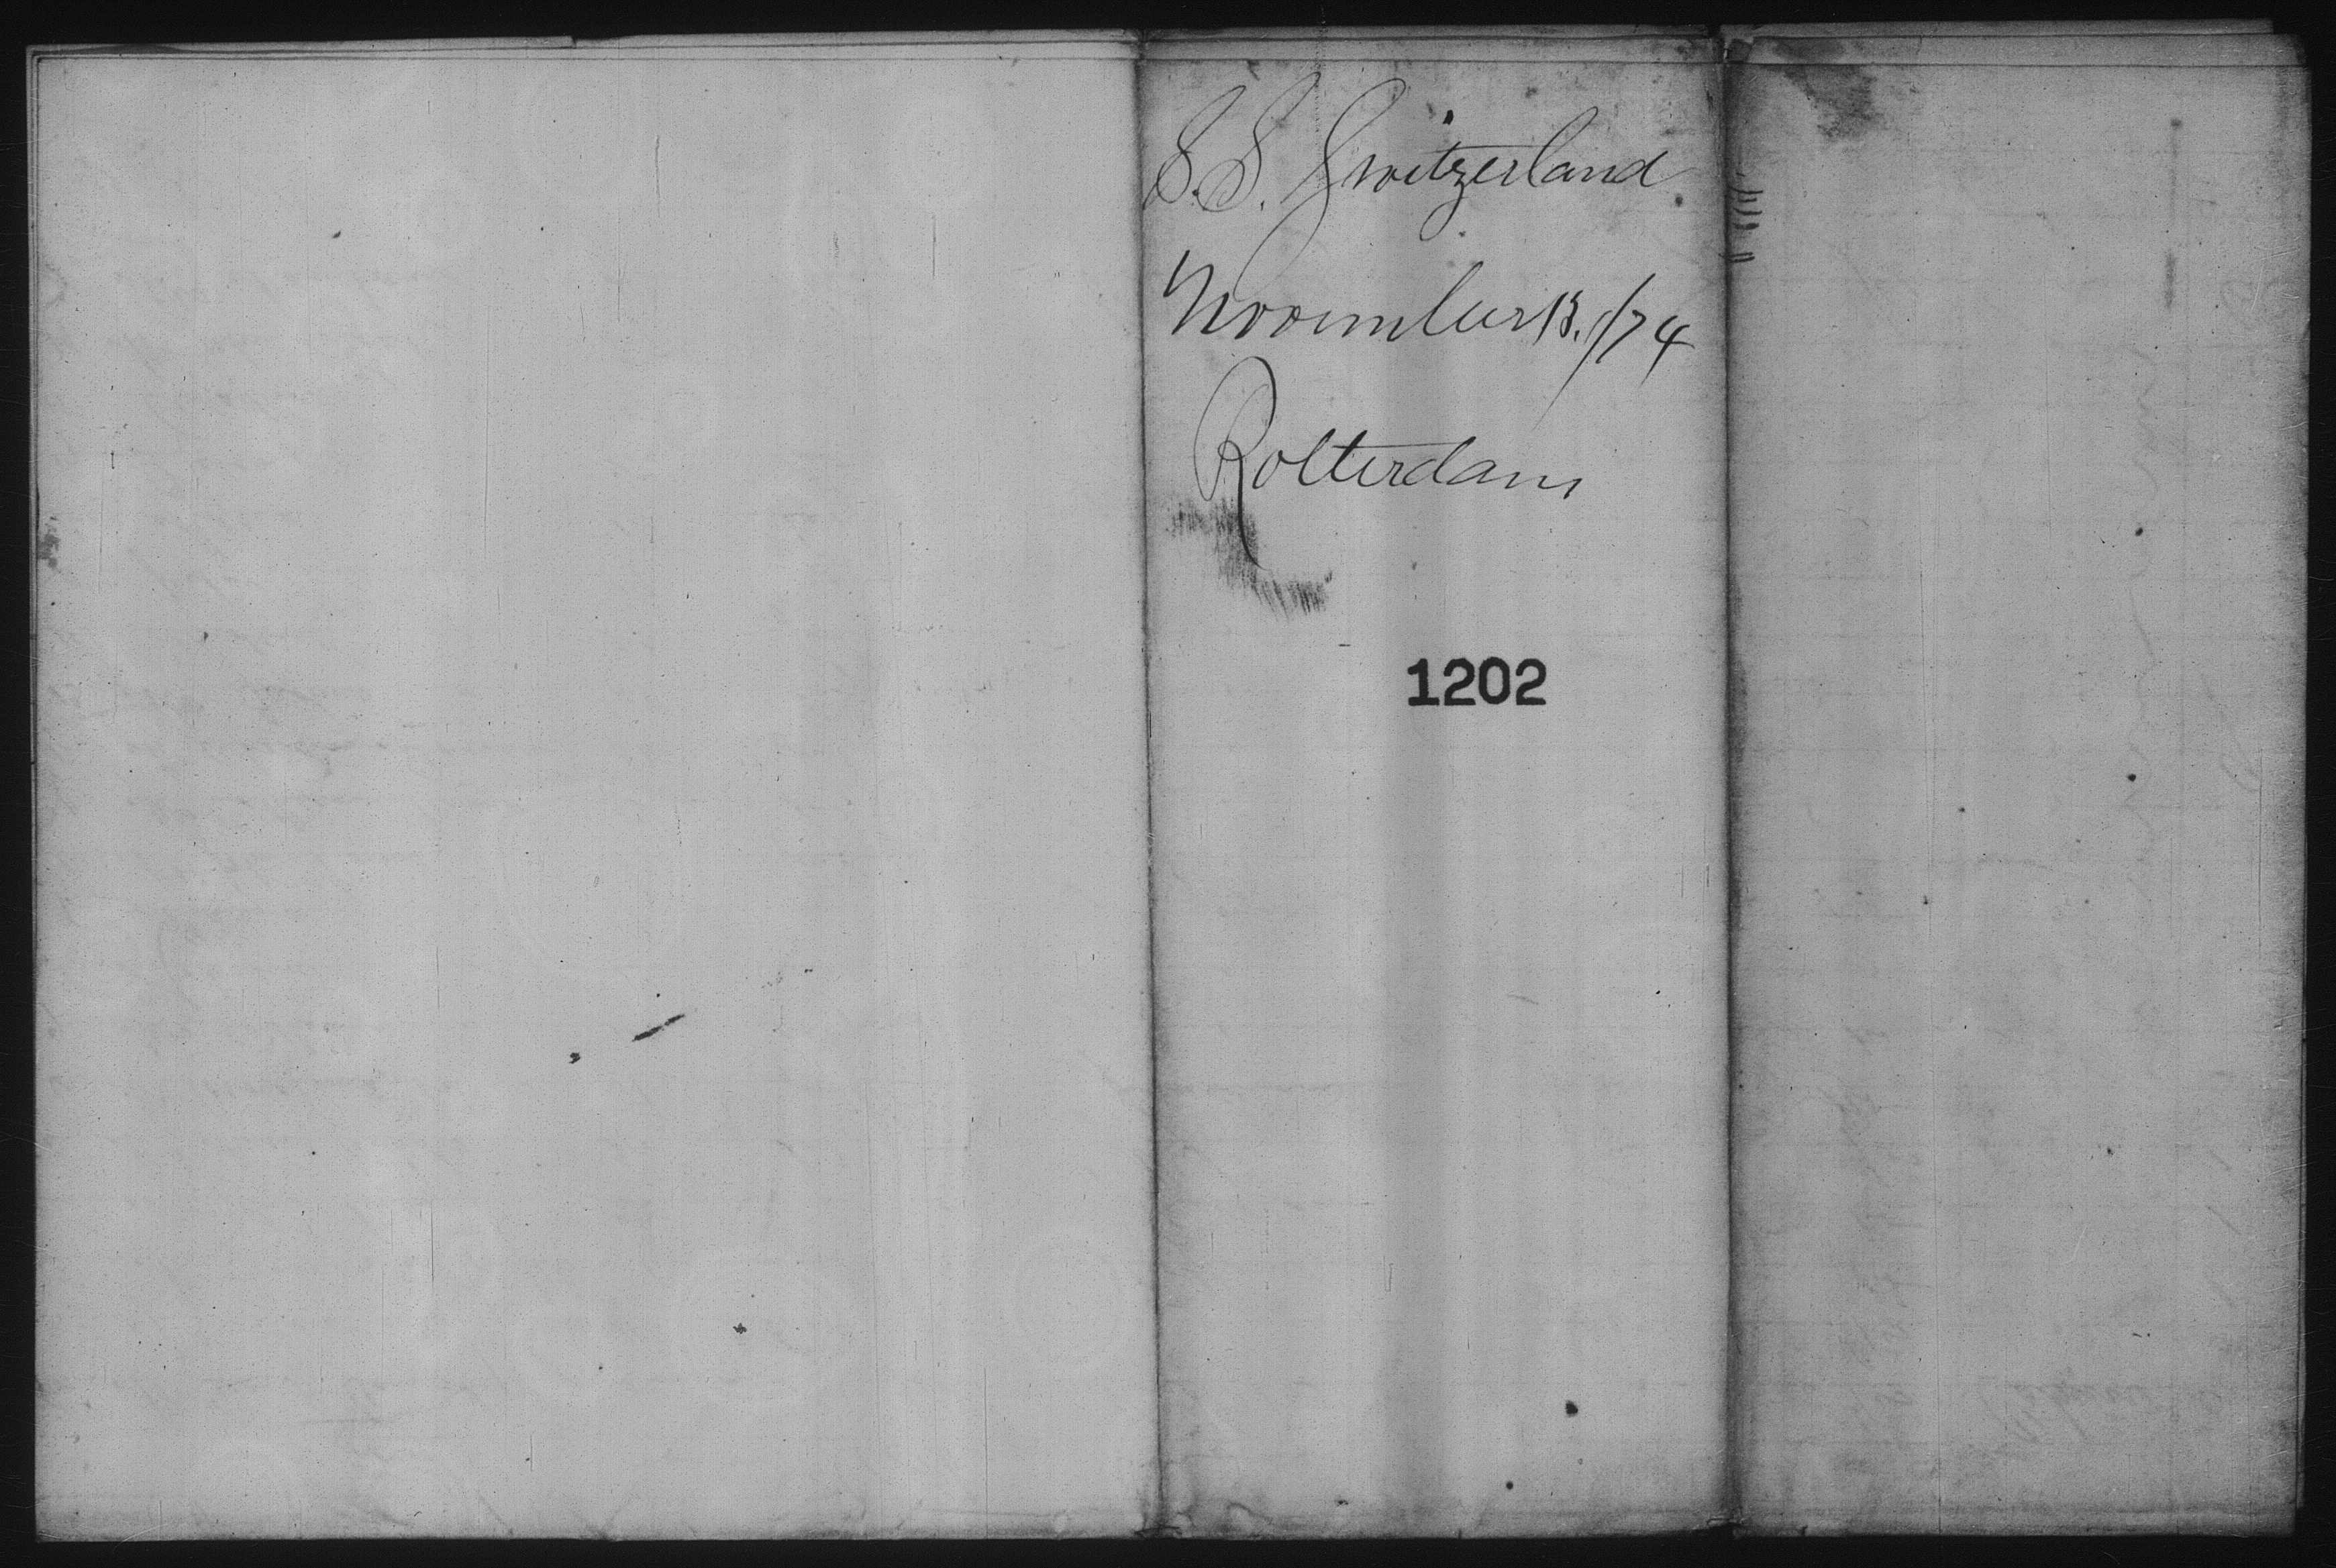 S.S. Switzerland.
November 13./74
Rotterdam
1202